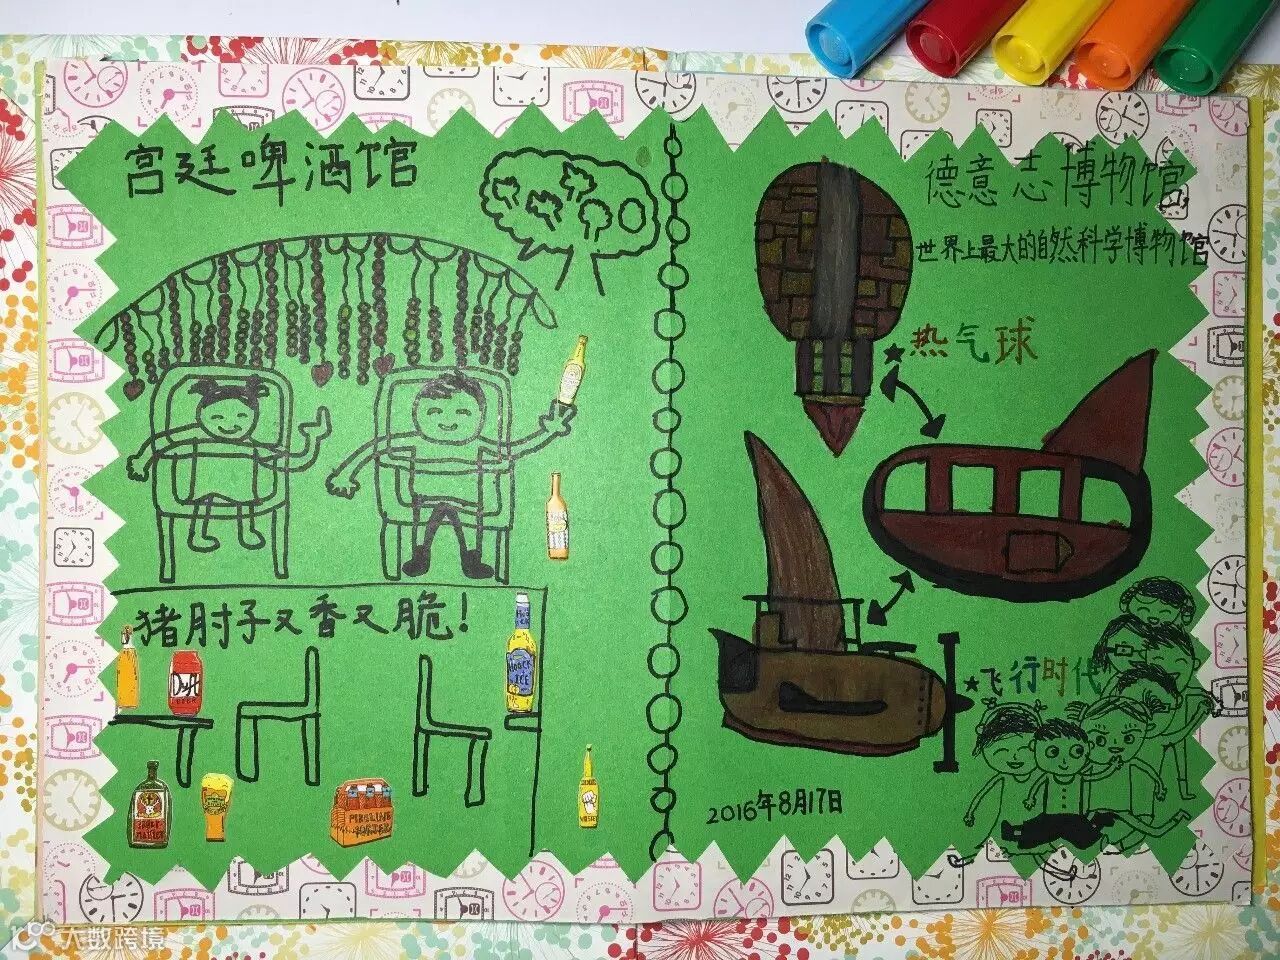 宫廷啤酒馆
猪肘子又香又脆!
Draft
BEER
Hooch
ICE
德意志博物馆
世界上最大的自然科学博物馆
★热气球
★飞行时代
2016年8月17日
大数跨境